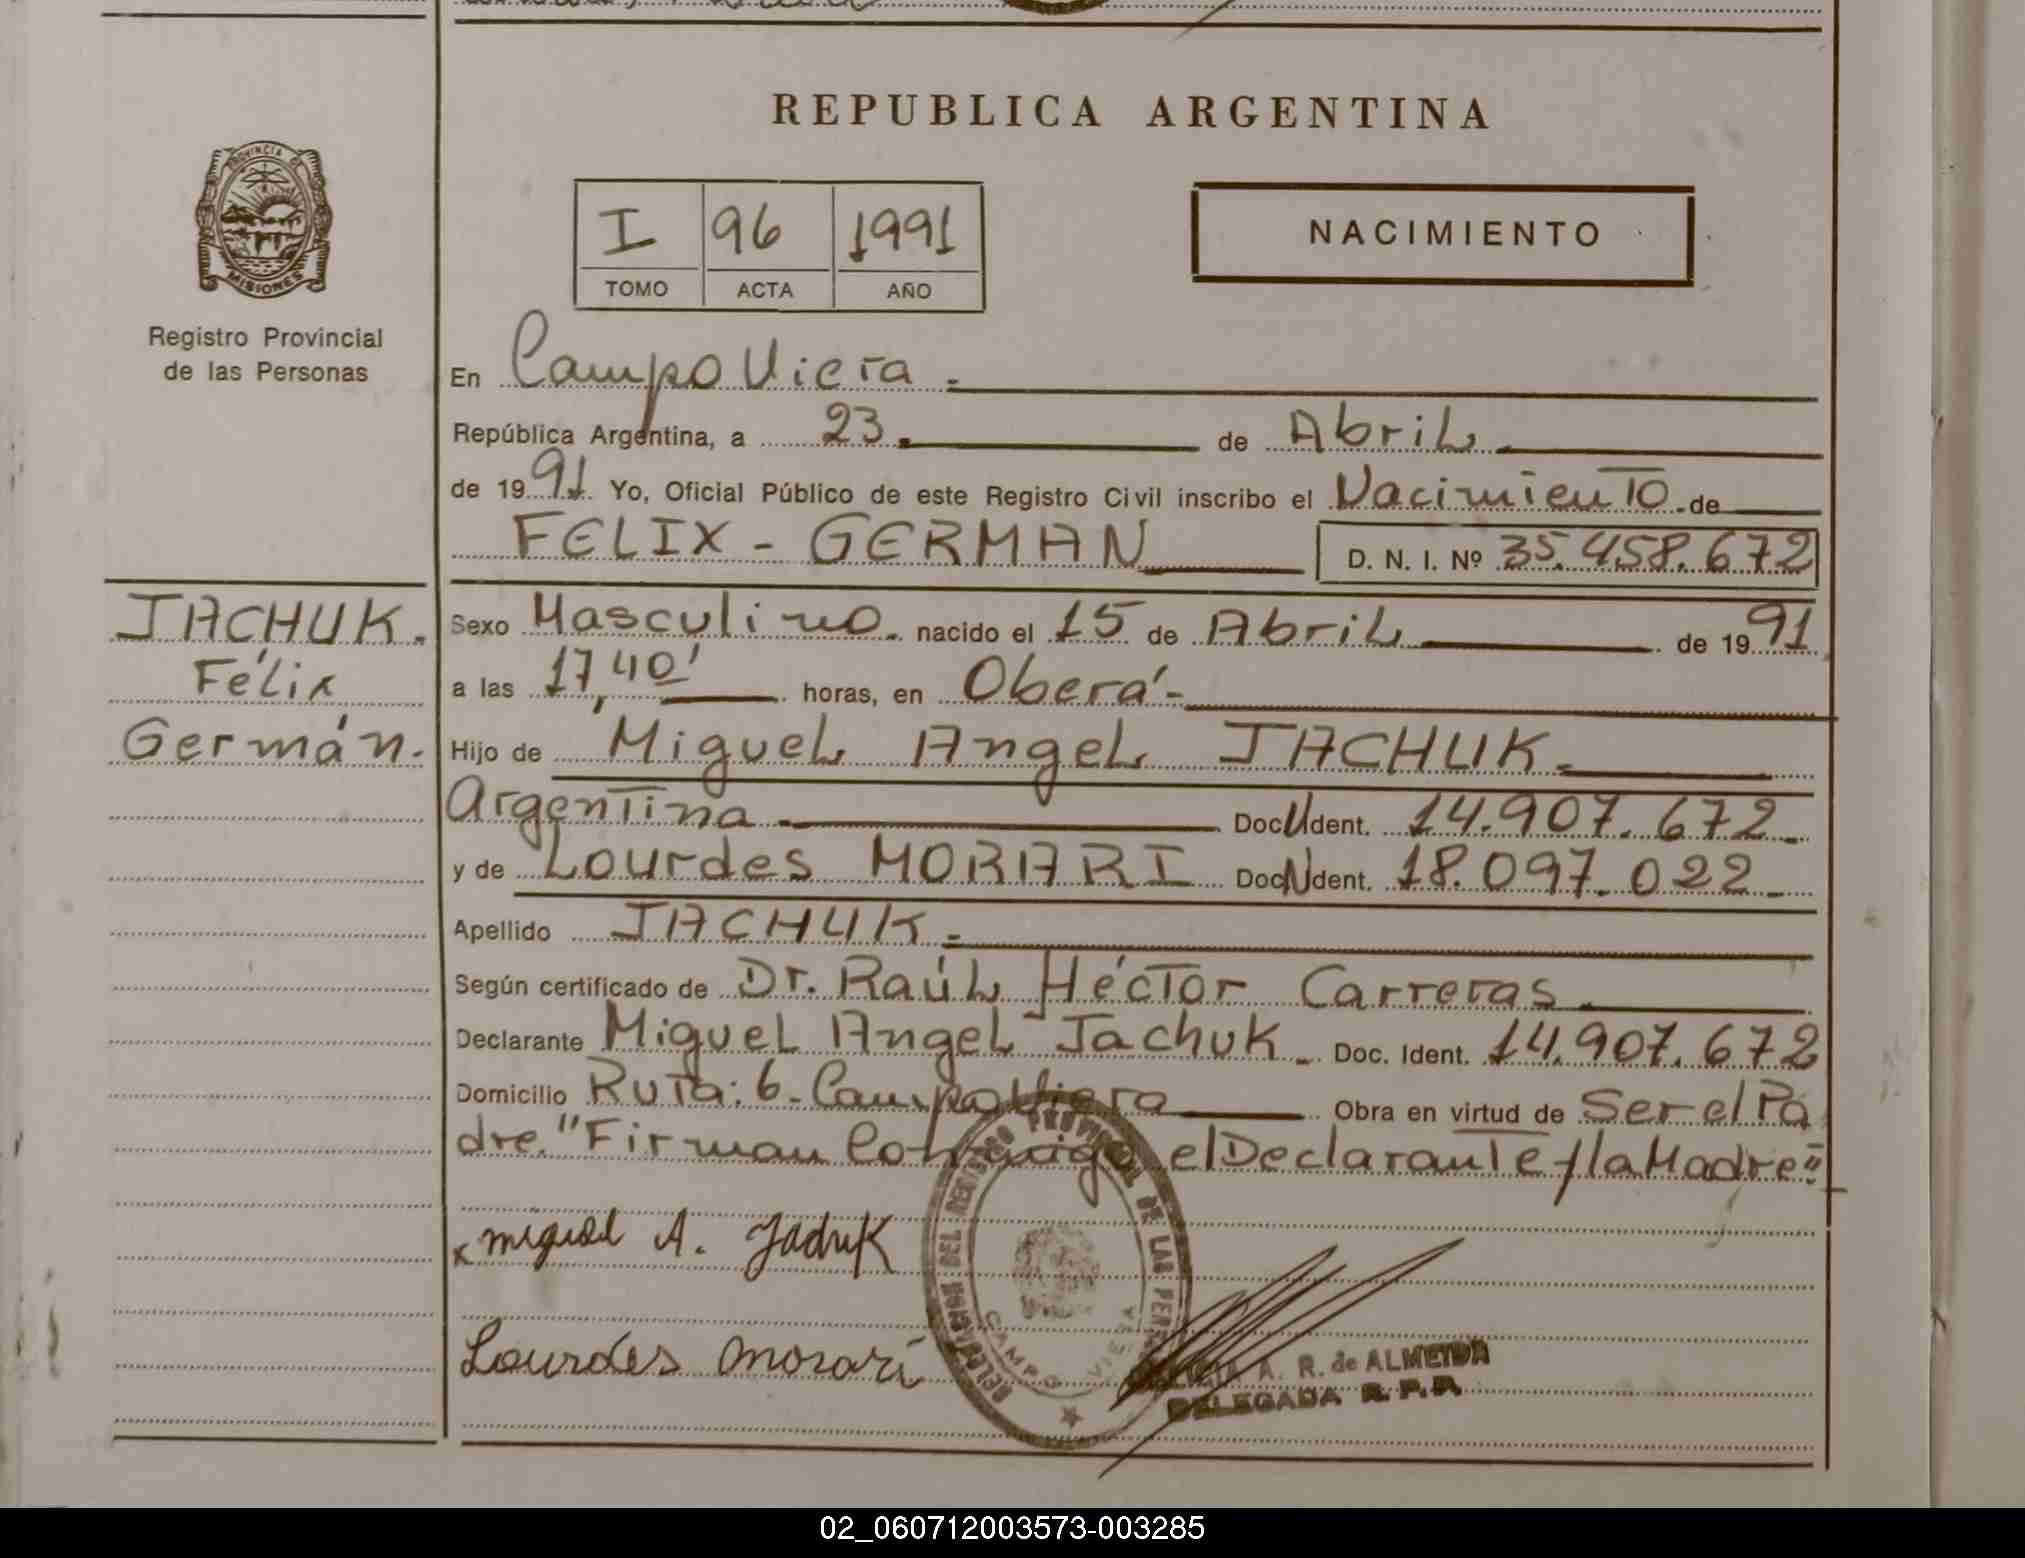 REPUBLICA ARGENTINA
PROVINCIA DE MISIONES
Registro Provincial
de las Personas
I 96 1991
TOMO ACTA AÑO
NACIMIENTO
En Campo Viera.
República Argentina, a 23. de Abril
de 1991. Yo, Oficial Público de este Registro Civil inscribo el Nacimiento de
FELIX - GERMAN D. N. I. Nº 35.458.672
JACHUK.
Félix
Germán.
Sexo Masculino. nacido el 15 de Abril de 1991
a las 17,40' horas, en Oberá.-
Hijo de Miguel Angel JACHUK.
Argentina. Doc U Ident. 14.907.672
y de Lourdes MORARI Doc N Ident. 18.097.022
Apellido JACHUK.
Según certificado de Dr. Raúl Héctor Carreras
Declarante Miguel Angel Jachuk Doc. Ident. 14.907.672
Domicilio Ruta: 6- Campo Viera Obra en virtud de Ser el Pa
dre. "Firman Conmigo el Declarante y la Madre"
x miguel A. Jachuk
Lourdes Morari
DELEGACION DEL REGISTRO PROVINCIAL DE LAS PER
CAMPO VIERA
A. R. de ALMEIDA
DELEGADA R. P. P.
02_060712003573-003285